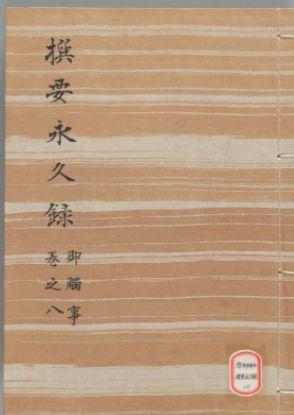 撰要永久録
御觸事
巻之八